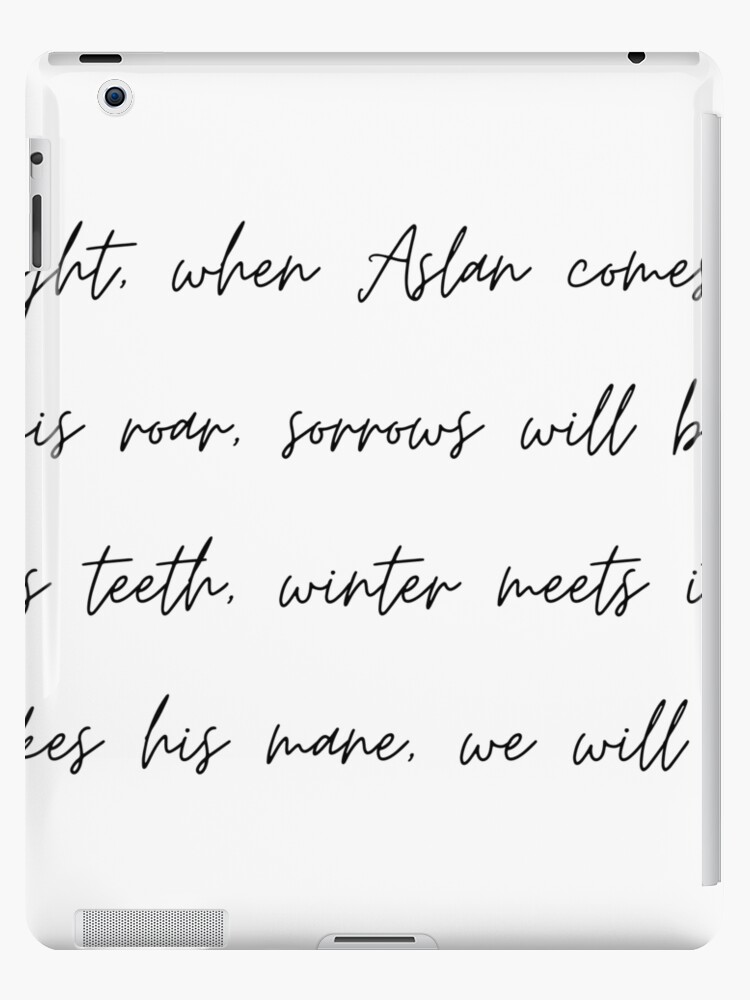 ght, when Aslan comes
is roar, sorrows will b
s teeth, winter meets i
kes his mane, we will